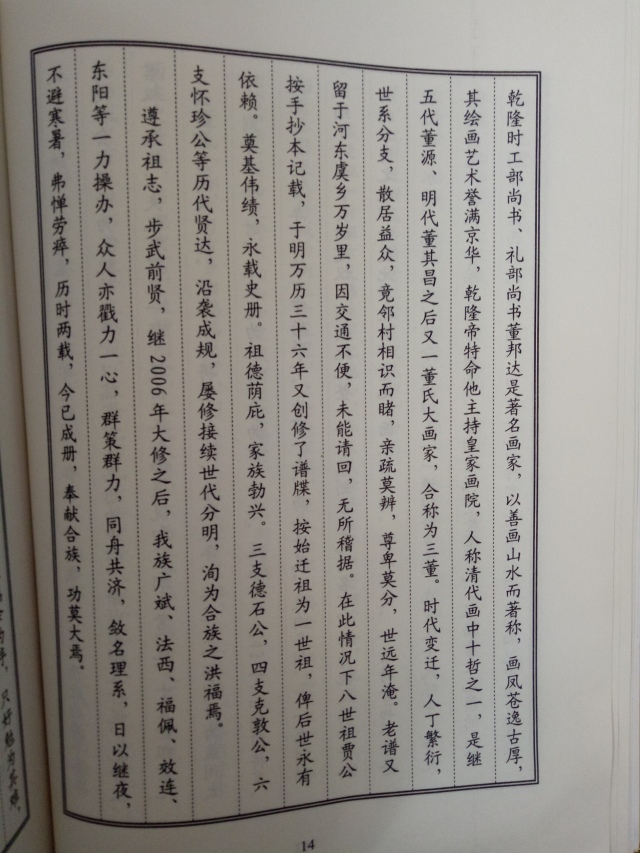 乾隆时工部尚书、礼部尚书董邦达是著名画家，以善画山水而著称，画风苍逸古厚，
其绘画艺术誉满京华，乾隆帝特命他主持皇家画院，人称清代画中十哲之一，是继
五代董源、明代董其昌之后又一董氏大画家，合称为三董。时代变迁，人丁繁衍，
世系分支，散居益众，竟邻村相识而睹，亲疏莫辨，尊卑莫分，世远年淹。老谱又
留于河东虞乡万岁里，因交通不便，未能请回，无所稽据。在此情况下八世祖贾公
按手抄本记载，于明万历三十六年又创修了谱牒，按始迁祖为一世祖，俾后世永有
依赖。奠基伟绩，永载史册。祖德荫庇，家族勃兴。三支德石公，四支克敦公，六
支怀珍公等历代贤达，沿袭成规，屡修接续世代分明，洵为合族之洪福焉。
遵承祖志，步武前贤，继2006年大修之后，我族广斌、法西、福佩、效连、
东阳等一力操办，众人亦戳力一心，群策群力，同舟共济，敛名理系，日以继夜，
不避寒暑，弗惮劳瘁，历时两载，今已成册，奉献合族，功莫大焉。
14